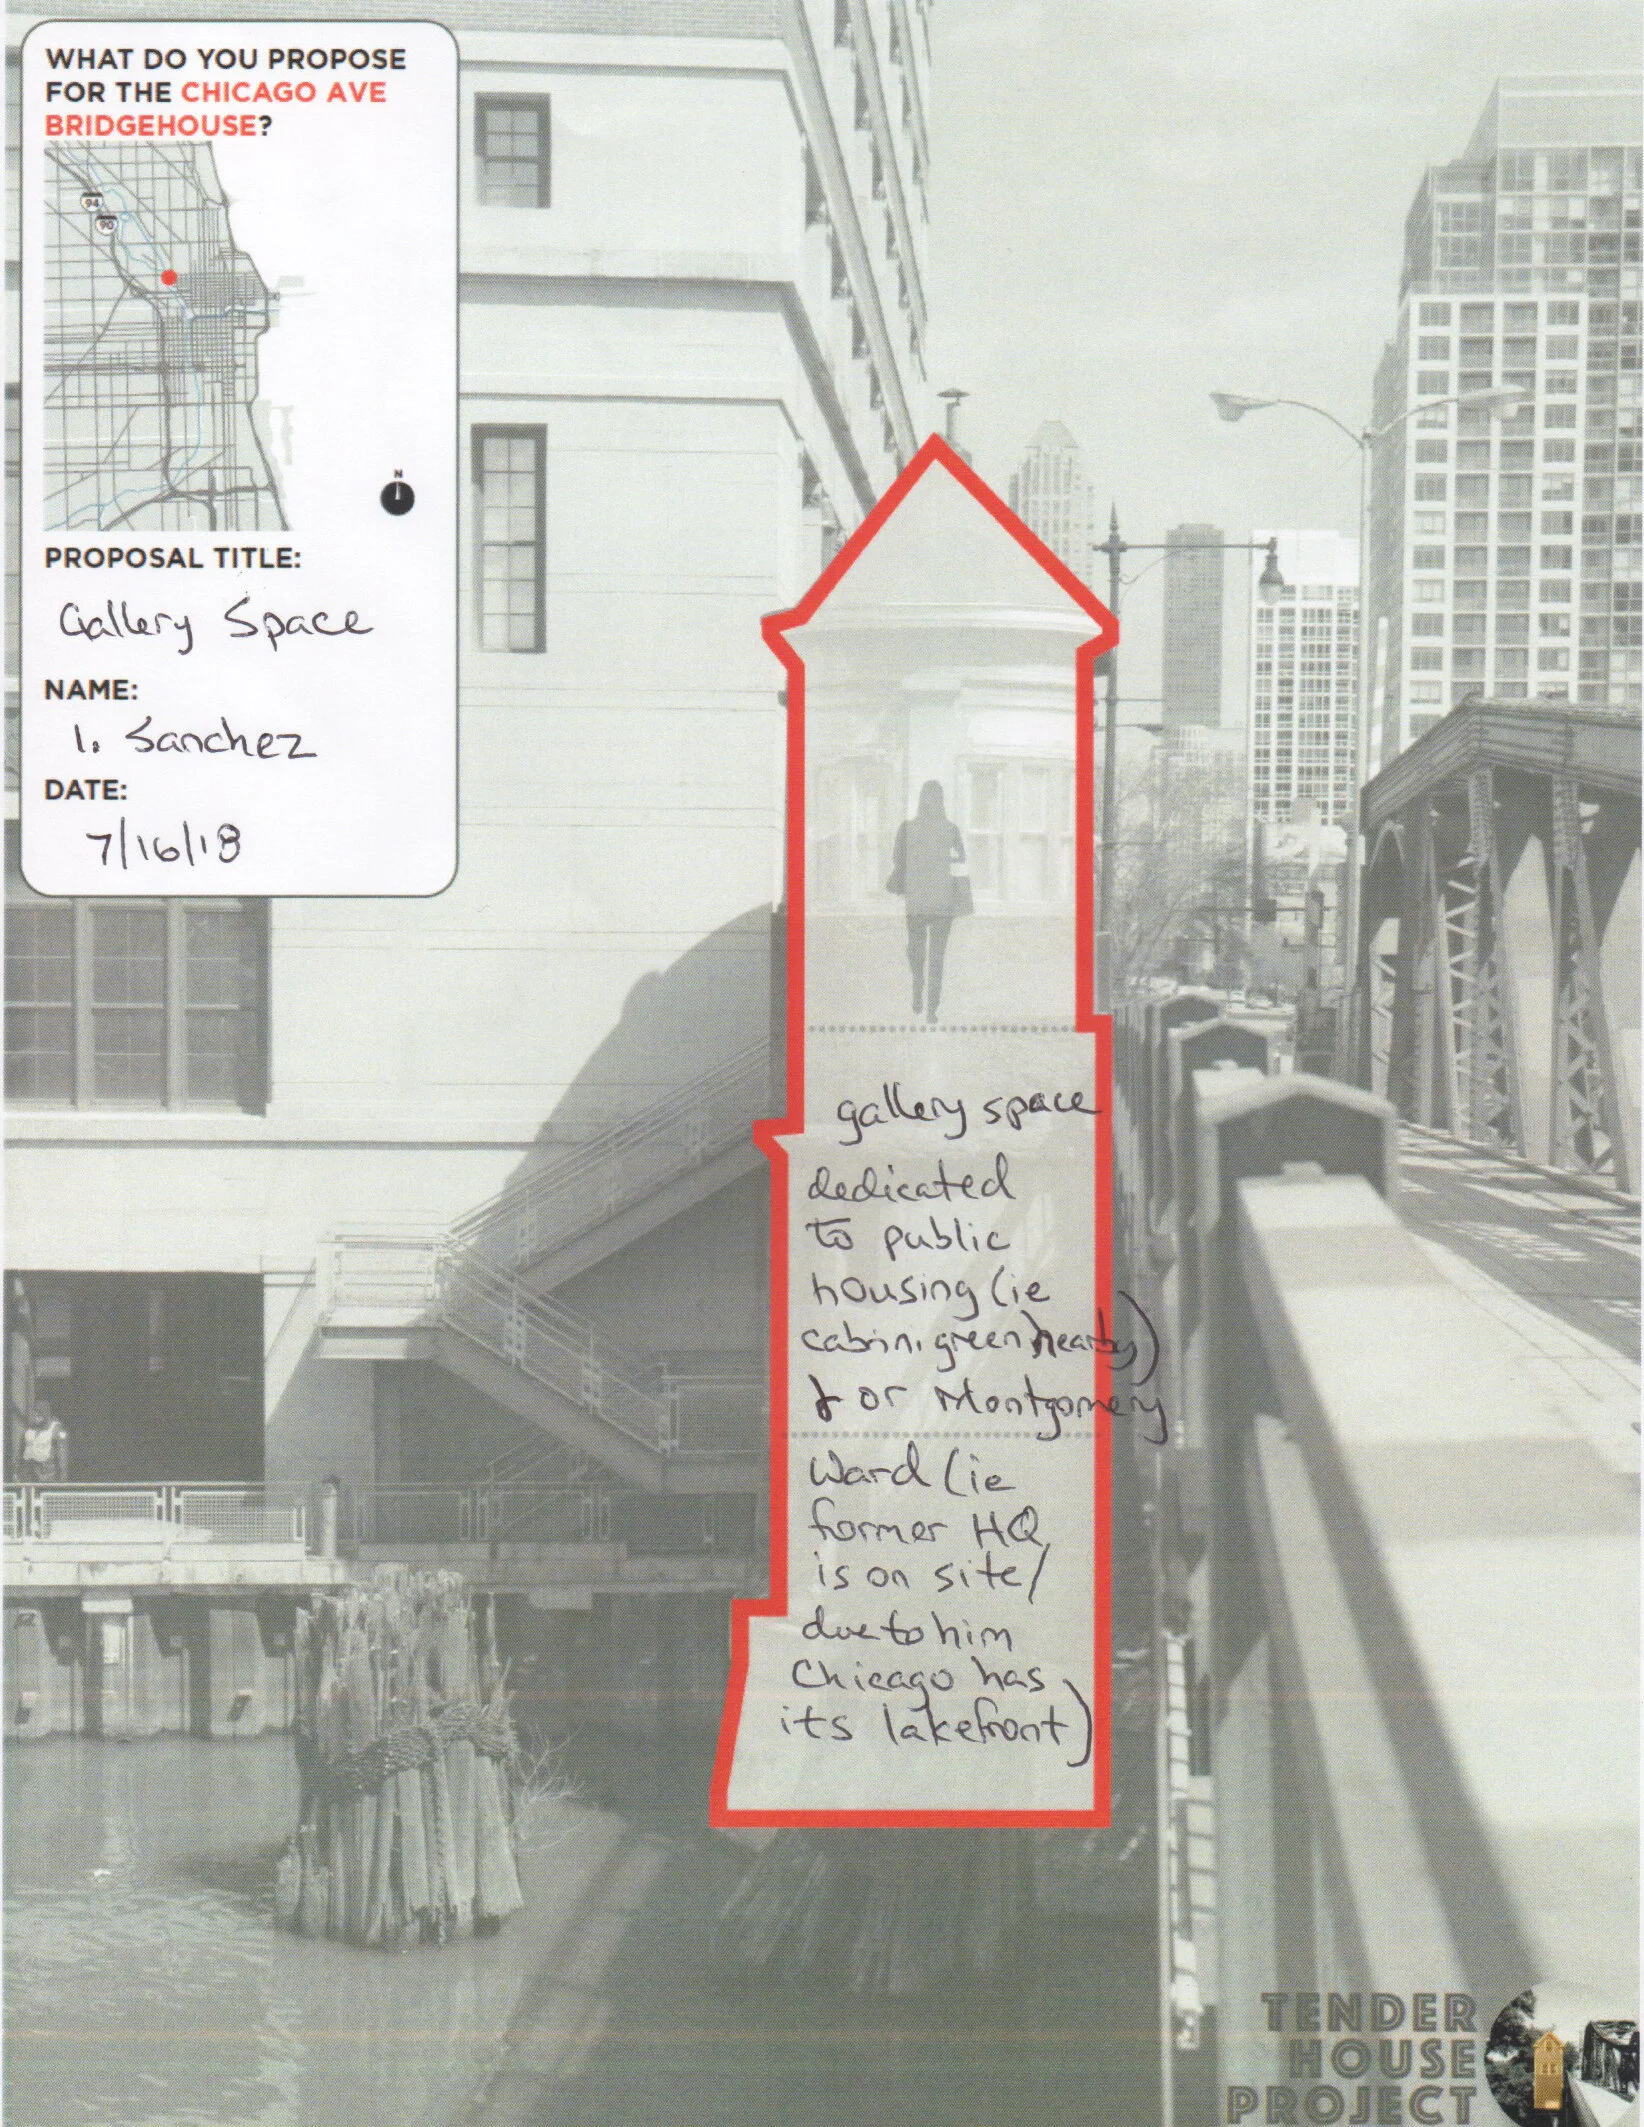 WHAT DO YOU PROPOSE
FOR THE CHICAGO AVE
BRIDGEHOUSE?
94
90
N
PROPOSAL TITLE:
Gallery Space
NAME:
I. Sanchez
DATE:
7/16/18
gallery space
dedicated
to public
housing (ie
cabrini green nearby)
& or Montgomery
Ward (ie
former HQ
is on site/
due to him
Chicago has
its lakefront)
TENDER
HOUSE
PROJECT